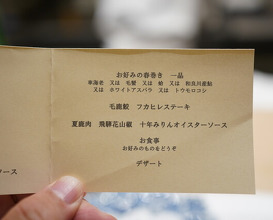 お好みの春巻き 一品
車海老 又は 毛蟹 又は 蛤 又は 和良川産鮎
又は ホワイトアスパラ 又は トウモロコシ
毛鹿鮫 フカヒレステーキ
夏鹿肉 飛騨花山椒 十年みりんオイスターソース
お食事
お好みのものをどうぞ
デザート
ソース